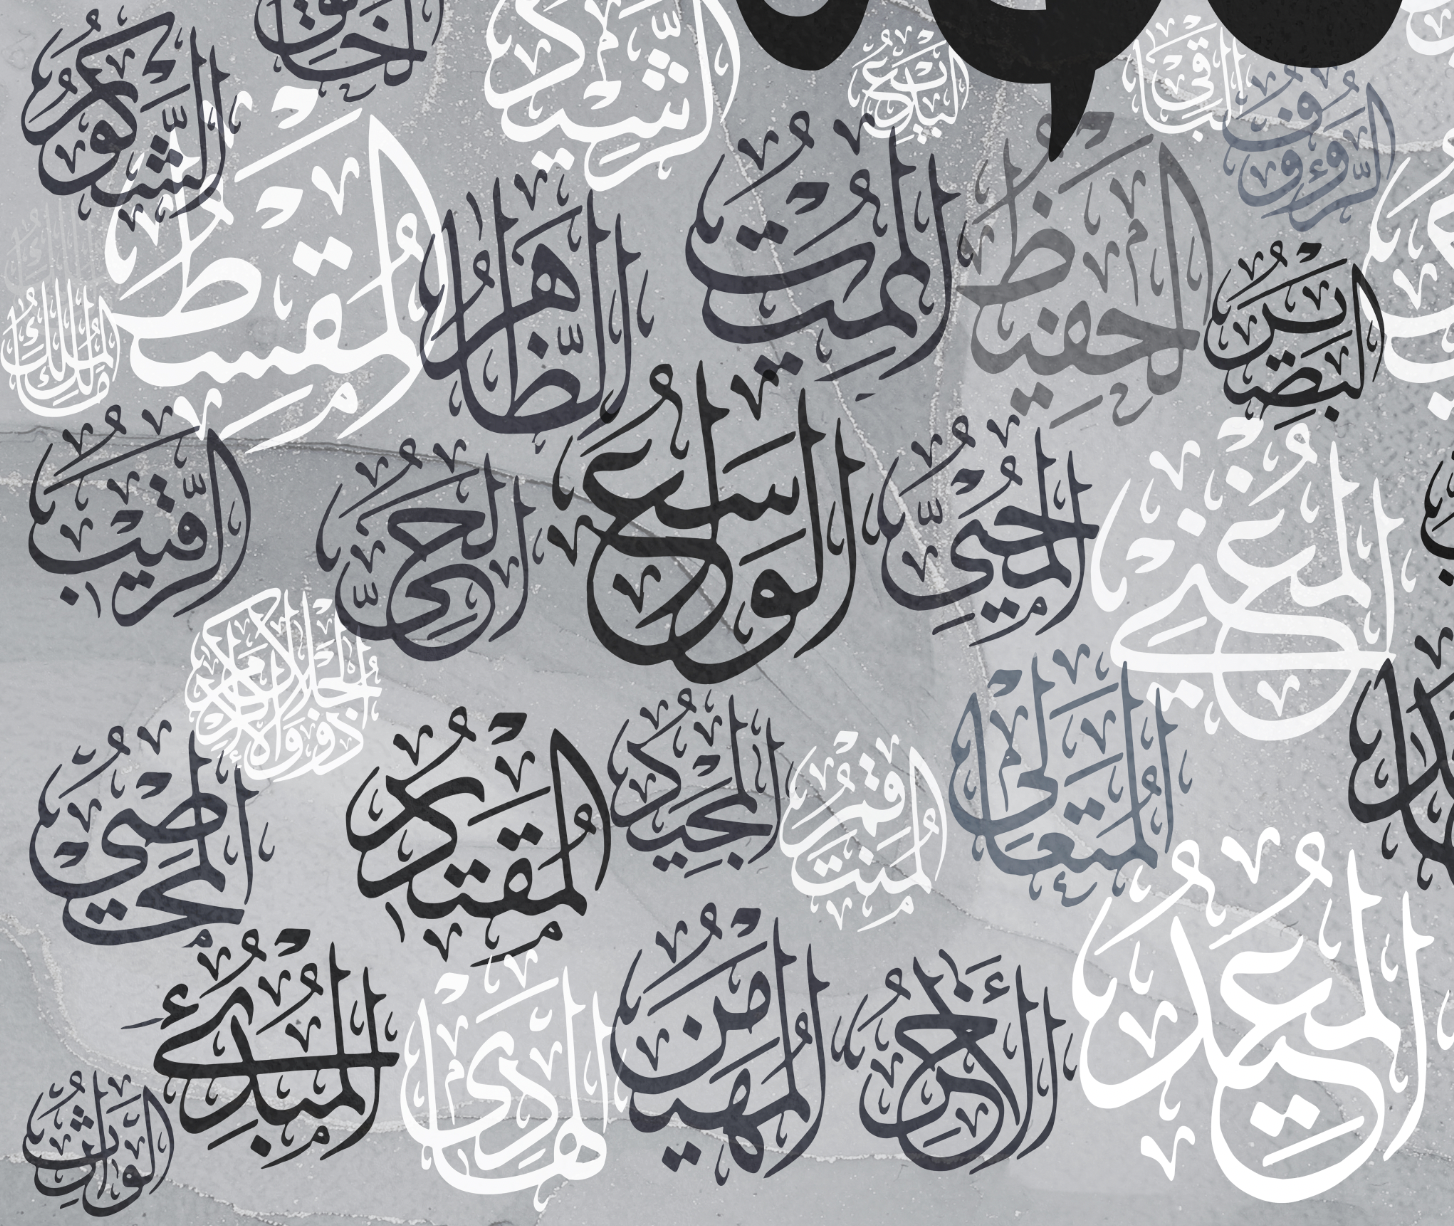 الشكور
الرشيد
البديع
الباقي
الرؤوف
المقسط
الظاهر
المميت
الحفيظ
البصير
مالك الملك
الرقيب
الحي
الواسع
المحيي
المغني
ذو الجلال والإكرام
المحصي
المقتدر
المجيد
المنتقم
المتعالي
المبدئ
الهادي
المهيمن
الآخر
المعيد
الوارث